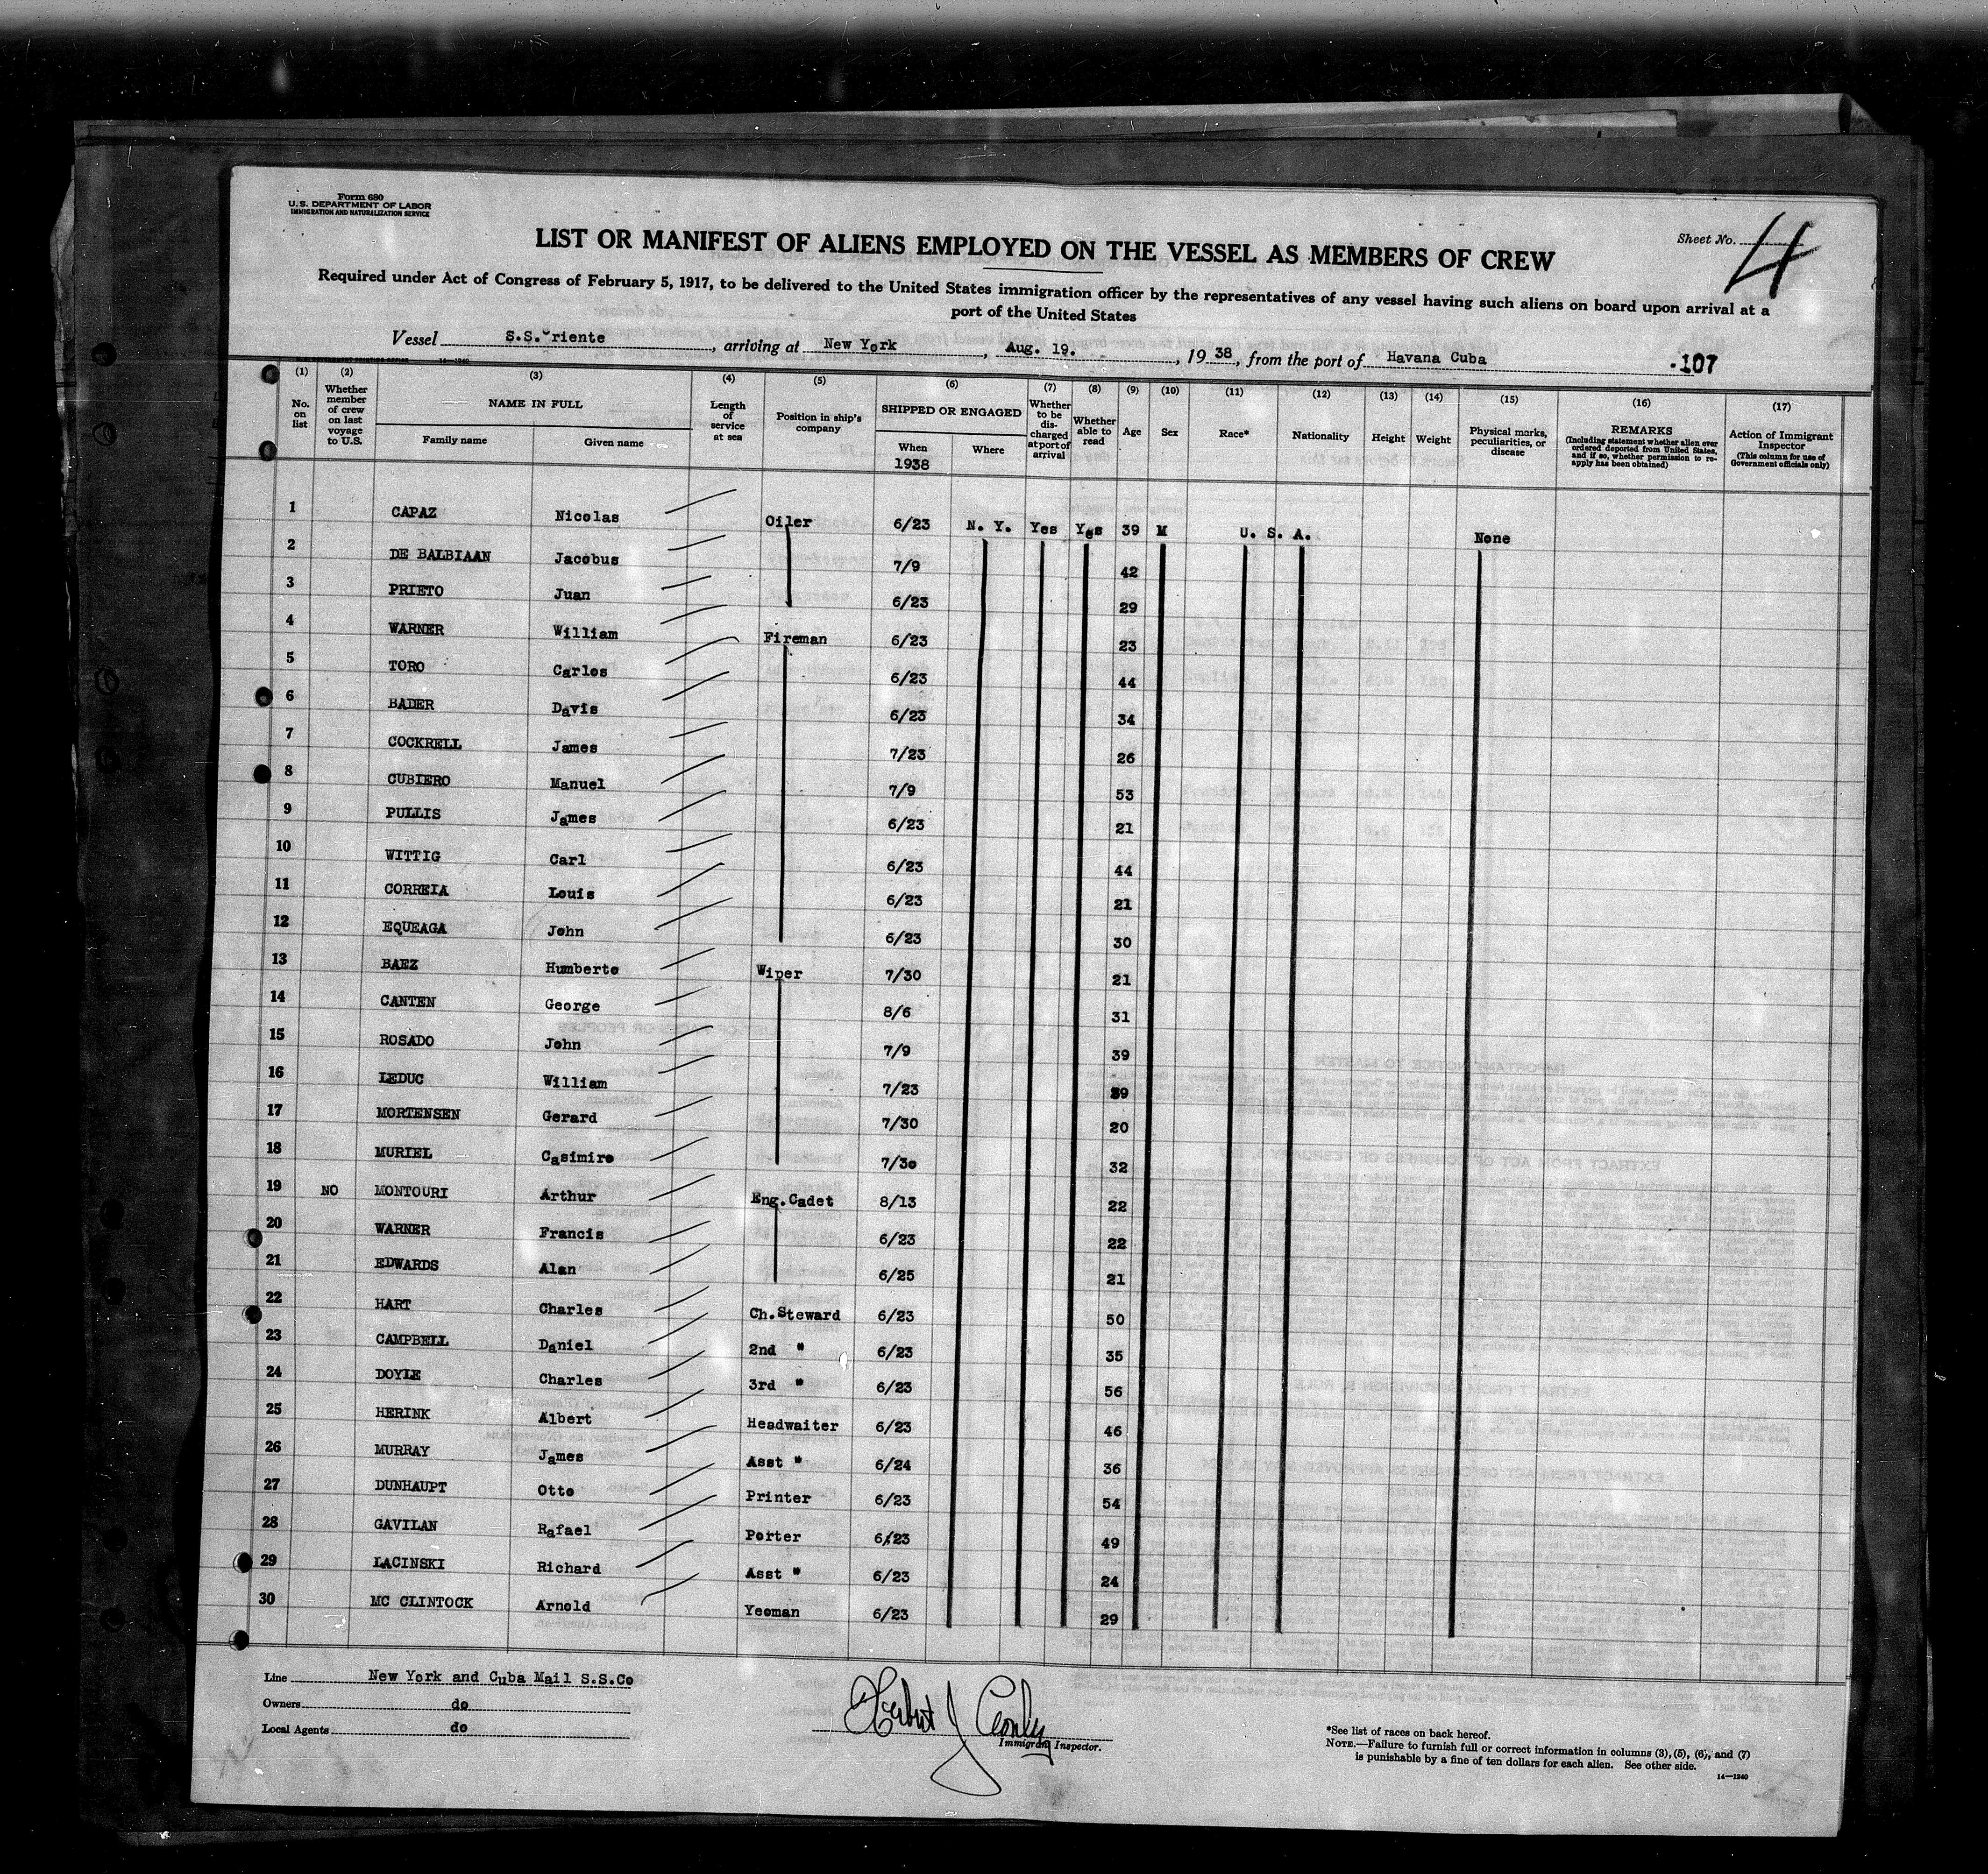 Form 680
U.S. DEPARTMENT OF LABOR
IMMIGRATION AND NATURALIZATION SERVICE
Sheet No. 4
LIST OR MANIFEST OF ALIENS EMPLOYED ON THE VESSEL AS MEMBERS OF CREW
Required under Act of Congress of February 5, 1917, to be delivered to the United States immigration officer by the representatives of any vessel having such aliens on board upon arrival at a
port of the United States
Vessel S.S. Oriente, arriving at New York, Aug. 19., 1938, from the port of Havana Cuba
107
(1) (2) (3) (4) (5) (6) (7) (8) (9) (10) (11) (12) (13) (14) (15) (16) (17)
No. on list
Whether member of crew on last voyage to U.S.
NAME IN FULL
Family name Given name
Length of service at sea
Position in ship's company
SHIPPED OR ENGAGED
When Where
1938
Whether to be discharged at port of arrival
Whether able to read
Age
Sex
Race*
Nationality
Height
Weight
Physical marks, peculiarities, or disease
REMARKS
(Including statement whether alien ever ordered deported from United States, and if so, whether permission to re-apply has been obtained)
Action of Immigrant Inspector
(This column for use of Government officials only)
1 CAPAZ Nicolas Oiler 6/23 N. Y. Yes Yes 39 M U. S. A. None
2 DE BALBIAAN Jacobus 7/9 42
3 PRIETO Juan 6/23 29
4 WARNER William Fireman 6/23 23
5 TORO Carlos 6/23 44
6 BADER Davis 6/23 34
7 COCKRELL James 7/23 26
8 CUBIERO Manuel 7/9 53
9 PULLIS James 6/23 21
10 WITTIG Carl 6/23 44
11 CORREIA Louis 6/23 21
12 EQUEAGA John 6/23 30
13 BAEZ Humberto Wiper 7/30 21
14 CANTEN George 8/6 31
15 ROSADO John 7/9 39
16 LEDUC William 7/23 39
17 MORTENSEN Gerard 7/30 20
18 MURIEL Casimiro 7/30 32
19 NO MONTOURI Arthur Eng. Cadet 8/13 22
20 WARNER Francis 6/23 22
21 EDWARDS Alan 6/25 21
22 HART Charles Ch. Steward 6/23 50
23 CAMPBELL Daniel 2nd " 6/23 35
24 DOYLE Charles 3rd " 6/23 56
25 HERINK Albert Headwaiter 6/23 46
26 MURRAY James Asst " 6/24 36
27 DUNHAUPT Otto Printer 6/23 54
28 GAVILAN Rafael Porter 6/23 49
29 LACINSKI Richard Asst " 6/23 24
30 MC CLINTOCK Arnold Yeoman 6/23 29
Line New York and Cuba Mail S.S.Co
Owners do
Local Agents do
Immigrant Inspector.
*See list of races on back hereof.
NOTE.—Failure to furnish full or correct information in columns (3), (5), (6), and (7)
is punishable by a fine of ten dollars for each alien. See other side.
14—1240